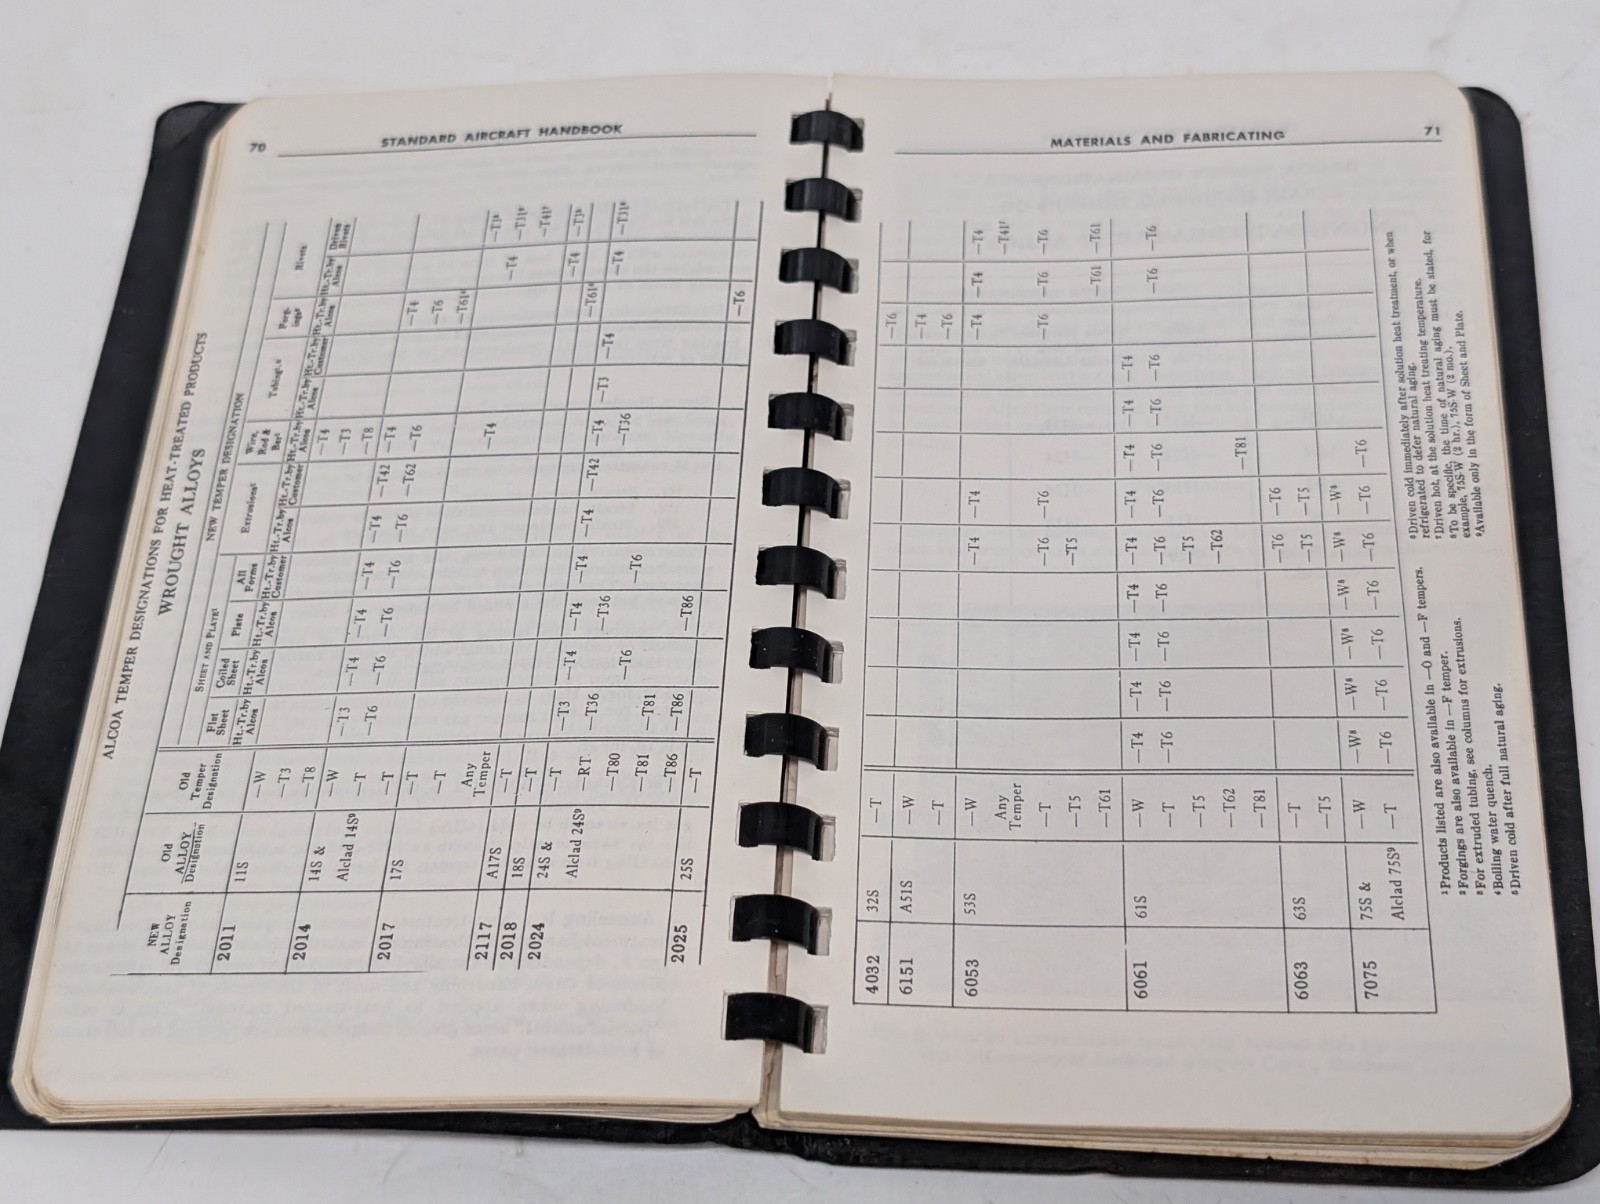 70 STANDARD AIRCRAFT HANDBOOK
ALCOA TEMPER DESIGNATIONS FOR HEAT-TREATED PRODUCTS
WROUGHT ALLOYS
NEW TEMPER DESIGNATION
SHEET AND PLATE¹ Extrusions¹ Wire, Rod & Bar¹ Tubing¹,³ Forgings² Rivets
NEW ALLOY Designation Old ALLOY Designation Old Temper Designation Flat Sheet Coiled Sheet Plate All Forms Driven Rivets
Ht.-Tr.by Alcoa Ht.-Tr.by Alcoa Ht.-Tr.by Alcoa Ht.-Tr.by Customer Ht.-Tr.by Alcoa Ht.-Tr.by Customer Ht.-Tr.by Alcoa Ht.-Tr.by Alcoa Ht.-Tr.by Customer Ht.-Tr.by Alcoa Ht.-Tr.by Alcoa
2011 11S —W —T4
—T3 —T3
—T8 —T8
2014 14S & —W —T3 —T4 —T4 —T4 —T4 —T42 —T4 —T4
Alclad 14S⁹ —T —T6 —T6 —T6 —T6 —T6 —T62 —T6 —T6
2017 17S —T —T61⁴
—T —T3⁵
—T —T4 —T4 —T31⁶
Any Temper —T41⁷
2117 A17S —T —T4 —T3⁵
2018 18S —T —T61⁴
2024 24S & —T —T3 —T4 —T4 —T4 —T4 —T42 —T4 —T3 —T4 —T4 —T31⁶
Alclad 24S⁹ —RT. —T36 —T36 —T36
—T80 —T6 —T6
—T81 —T81
—T86 —T86 —T86
2025 25S —T —T6
MATERIALS AND FABRICATING 71
4032 32S —T —T6
6151 A51S —W —T4
—T —T6
6053 53S —W —T4 —T4 —T4 —T4 —T4
Any Temper —T41⁷
—T —T6 —T6 —T6 —T6 —T6
—T5 —T5
—T61 —T61 —T61
6061 61S —W —T4 —T4 —T4 —T4 —T4 —T4 —T4 —T4 —T4
—T —T6 —T6 —T6 —T6 —T6 —T6 —T6 —T6 —T6 —T6 —T6
—T5 —T5
—T62 —T62
—T81 —T81
6063 63S —T —T6 —T6
—T5 —T5 —T5
7075 75S & —W —W⁸ —W⁸ —W⁸ —W⁸ —W⁸ —W⁸
Alclad 75S⁹ —T —T6 —T6 —T6 —T6 —T6 —T6 —T6
¹Products listed are also available in —O and —F tempers.
²Forgings are also available in —F temper.
³For extruded tubing, see columns for extrusions.
⁴Boiling water quench.
⁵Driven cold after full natural aging.
⁶Driven cold immediately after solution heat treatment, or when
refrigerated to defer natural aging.
⁷Driven hot, at the solution heat treating temperature.
⁸To be specific, the time of natural aging must be stated, for
example, 75S-W (2 hr.), 75S-W (2 mo.).
⁹Available only in the form of Sheet and Plate.